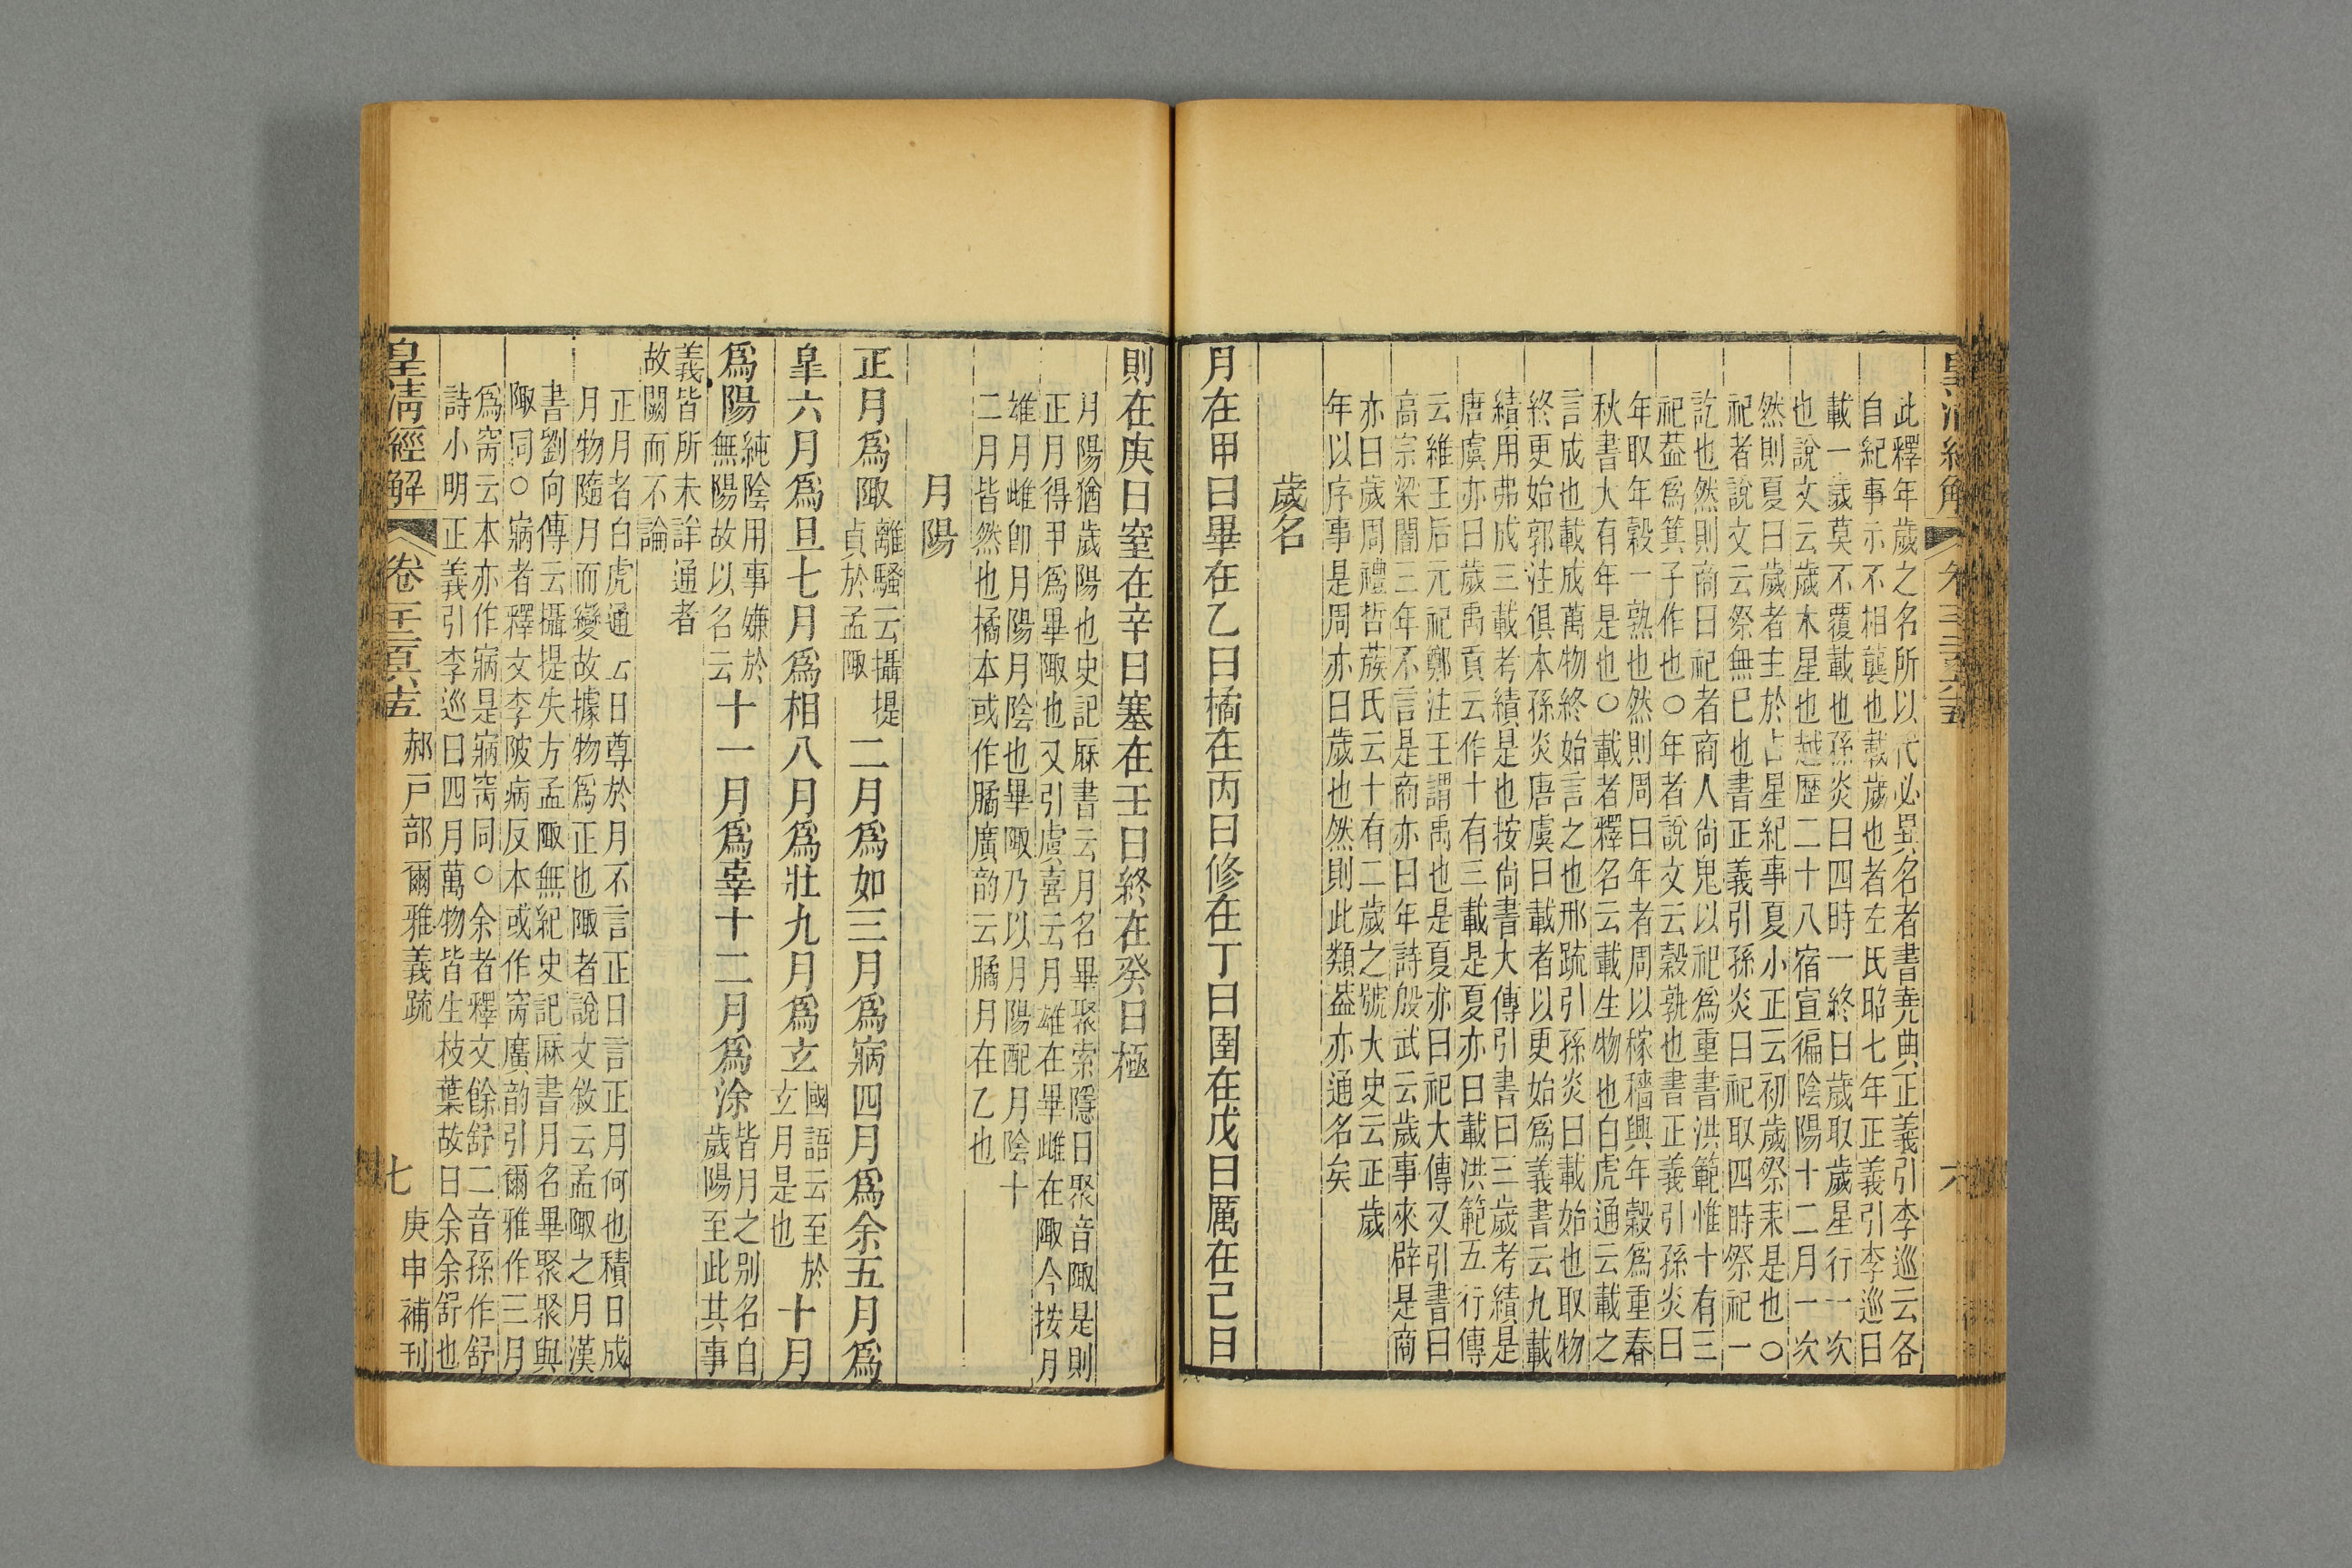 此釋年歲之名所以代必異名者書堯典正義引李巡云各
自紀事示不相襲也載歲也者左氏昭七年正義引李巡曰
載一歲莫不覆載也孫炎曰四時一終曰歲取歲星行一次
也說文云歲木星也越歷二十八宿宣徧陰陽十二月一次
然則夏曰歲者主於占星紀事夏小正云初歲祭耒是也○
祀者說文云祭無巳也書正義引孫炎曰祀取四時祭祀一
訖也然則商曰祀者商人尙鬼以祀爲重書洪範惟十有三
祀葢爲箕子作也○年者說文云穀孰也書正義引孫炎曰
年取年穀一熟也然則周曰年者周以稼穡興年穀爲重春
秋書大有年是也○載者釋名云載生物也白虎通云載之
言成也載成萬物終始言之也邢疏引孫炎曰載始也取物
終更始郭注俱本孫炎唐虞曰載者以更始爲義書云九載
績用弗成三載考績是也按尙書大傳引書曰三歲考績是
唐虞亦曰歲禹貢云作十有三載是夏亦曰載洪範五行傳
云維王后元祀鄭注王謂禹也是夏亦曰祀大傳又引書曰
高宗梁闇三年不言是商亦曰年詩殷武云歲事來辟是商
亦曰歲周禮硩蔟氏云十有二歲之號大史云正歲
年以序事是周亦曰歲也然則此類葢亦通名矣
歲名
月在甲曰畢在乙曰橘在丙曰修在丁曰圉在戊曰厲在己曰
則在庚曰窒在辛曰塞在壬曰終在癸曰極
月陽猶歲陽也史記厤書云月名畢聚索隱曰聚音陬是則
正月得甲爲畢陬也又引虞喜云月雄在畢雌在陬今按月
雄月雌卽月陽月陰也畢陬乃以月陽配月陰十
二月皆然也橘本或作𦠘廣韵云𦠘月在乙也
月陽
正月爲陬離騷云攝提貞於孟陬二月爲如三月爲寎四月爲余五月爲
皐六月爲且七月爲相八月爲壯九月爲玄國語云至於玄月是也十月
爲陽純陰用事嫌於無陽故以名云十一月爲辜十二月爲涂皆月之別名自歲陽至此其事
義皆所未詳通者故闕而不論
正月者白虎通云曰尊於月不言正日言正月何也積日成
月物隨月而變故據物爲正也陬者說文敘云孟陬之月漢
書劉向傳云攝提失方孟陬無紀史記厤書月名畢聚聚與
陬同○寎者釋文李陂病反本或作窉廣韵引爾雅作三月
爲窉云本亦作寎是寎窉同○余者釋文餘舒二音孫作舒
詩小明正義引李巡曰四月萬物皆生枝葉故曰余余舒也
皇清經解
七
郝戸部爾雅義疏
庚申補刊